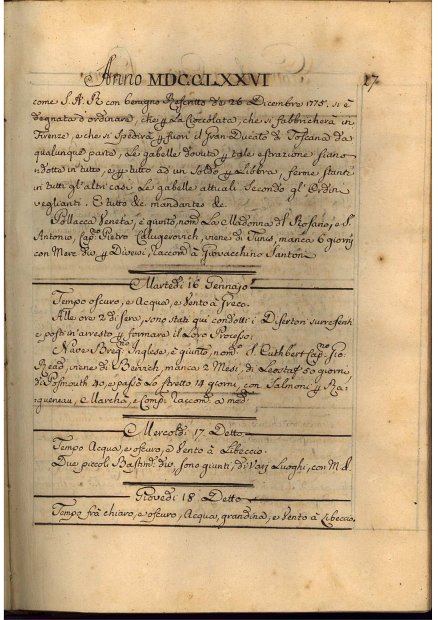 Anno MDCCLXXVI 17
come S. A. R. con benigno Rescritto de 26 Dicembre 1775, si è
degnata d'ordinare, che p la Cioccolata, che si fabbricherà in
Firenze, e che si spedirà p fuori il Gran Ducato di Toscana da
qualunque parte, Le gabelle dovute p tale estrazione siano
ridotte in tutto, e p tutto ad un Soldo p Libbra, ferme stanti
in tutti gl'altri casi Le gabelle attuali Secondo gl'Ordini
veglianti. E tutto &c mandantes &c.
Pollacca Veneta, è giunto, nom. La Madonna dl Rosario, e S.
Antonio, Capno Pietro Calugerovich, viene di Tunis, manca 6 giorni
con Merc. div. p Diversi, raccond. à Giovacchino Santoni
Martedì 16 Gennajo
Tempo oscuro, e Acqua, e Vento à Greco.
Alle ore 2 di sera, sono stati qui condotti i Disertori
e posti in arresto p formare il Loro Processo.
Nave Inglese, è giunto, nom. S. Cuthbert Capno Gio
Read, viene di Bervich, manca 2 Mesi, di 50 giorni,
di 40, e passò Lo stretto 14 giorni, con Salmoni p
, e Compi raccom. a med.
Mercoldì 17 Detto
Tempo Acqua, e oscuro, e Vento à Libeccio.
Due piccoli Bastim. div. sono giunti, di Varj Luoghi, con M. d.
Giovedì 18 Detto
Tempo frà chiaro, e oscuro, Acqua, grandina, e Vento à Libeccio.